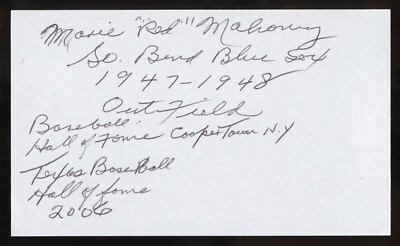 Marie "Red" Mahoney
So. Bend Blue Sox
1947-1948
Out Field
Baseball
Hall of Fame Cooper Town N.Y
Texas Baseball
Hall of fame
2006